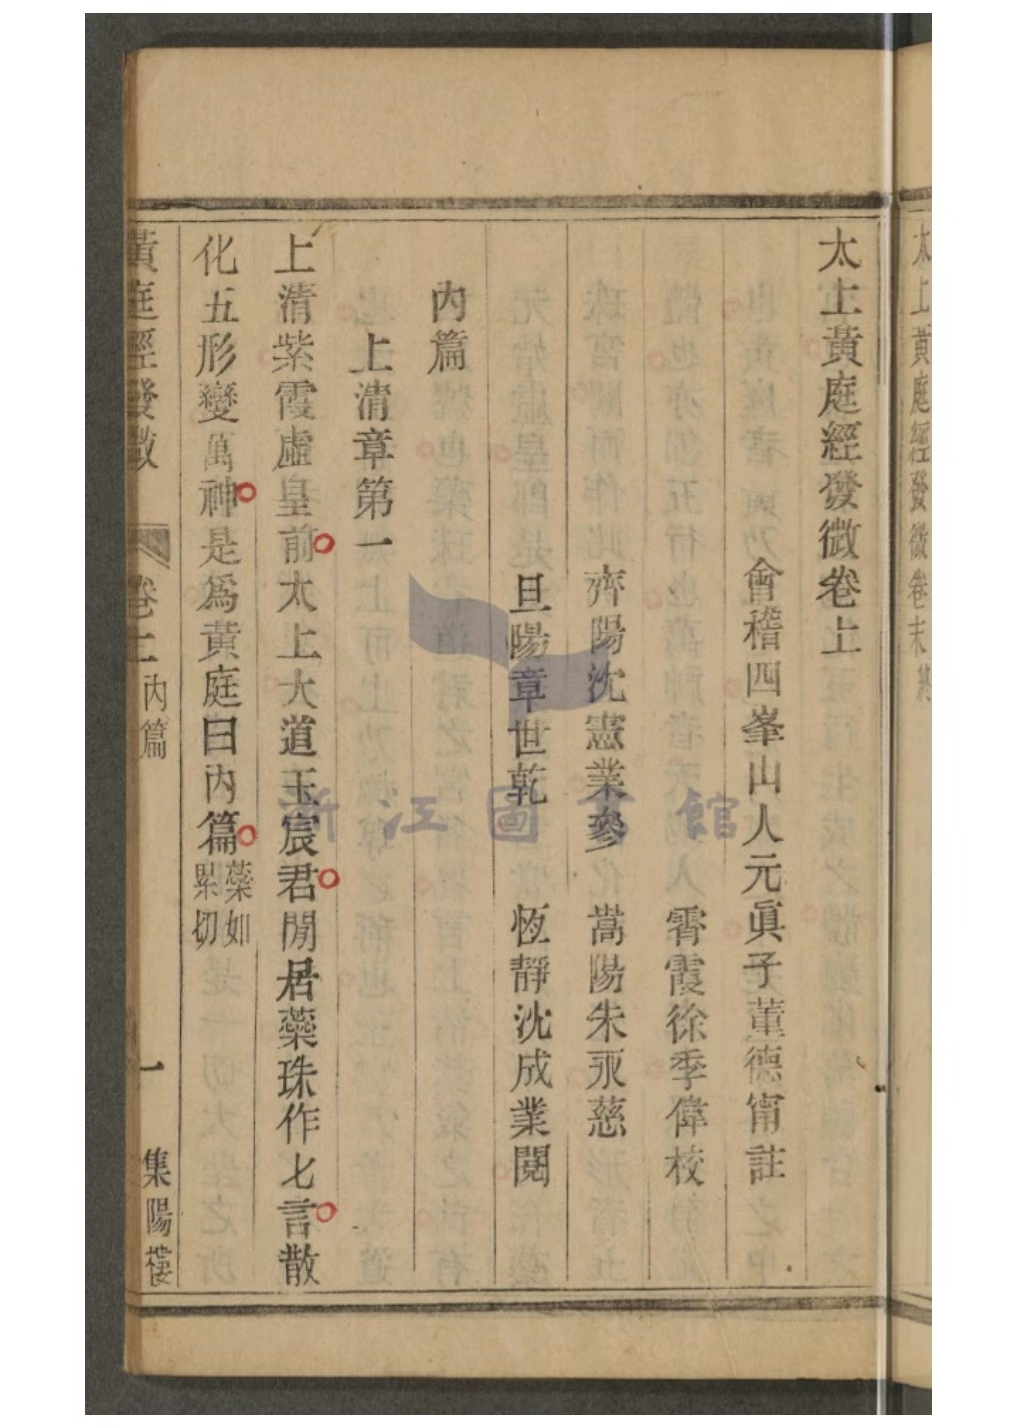 太上黃庭經發微卷末
太上黃庭經發微卷上
會稽四峯山人元眞子董德甯註
霽霞徐季偉校
齊陽沈憲業參 嵩陽朱永慈
旦陽章世乾 恆靜沈成業閱
內篇
上清章第一
上清紫霞虛皇前太上大道玉宸君閒居蘂珠作七言散
化五形變萬神是爲黃庭曰內篇蘂如
累切
黃庭經發微 卷上 內篇 一 集陽樓
浙江圖書館